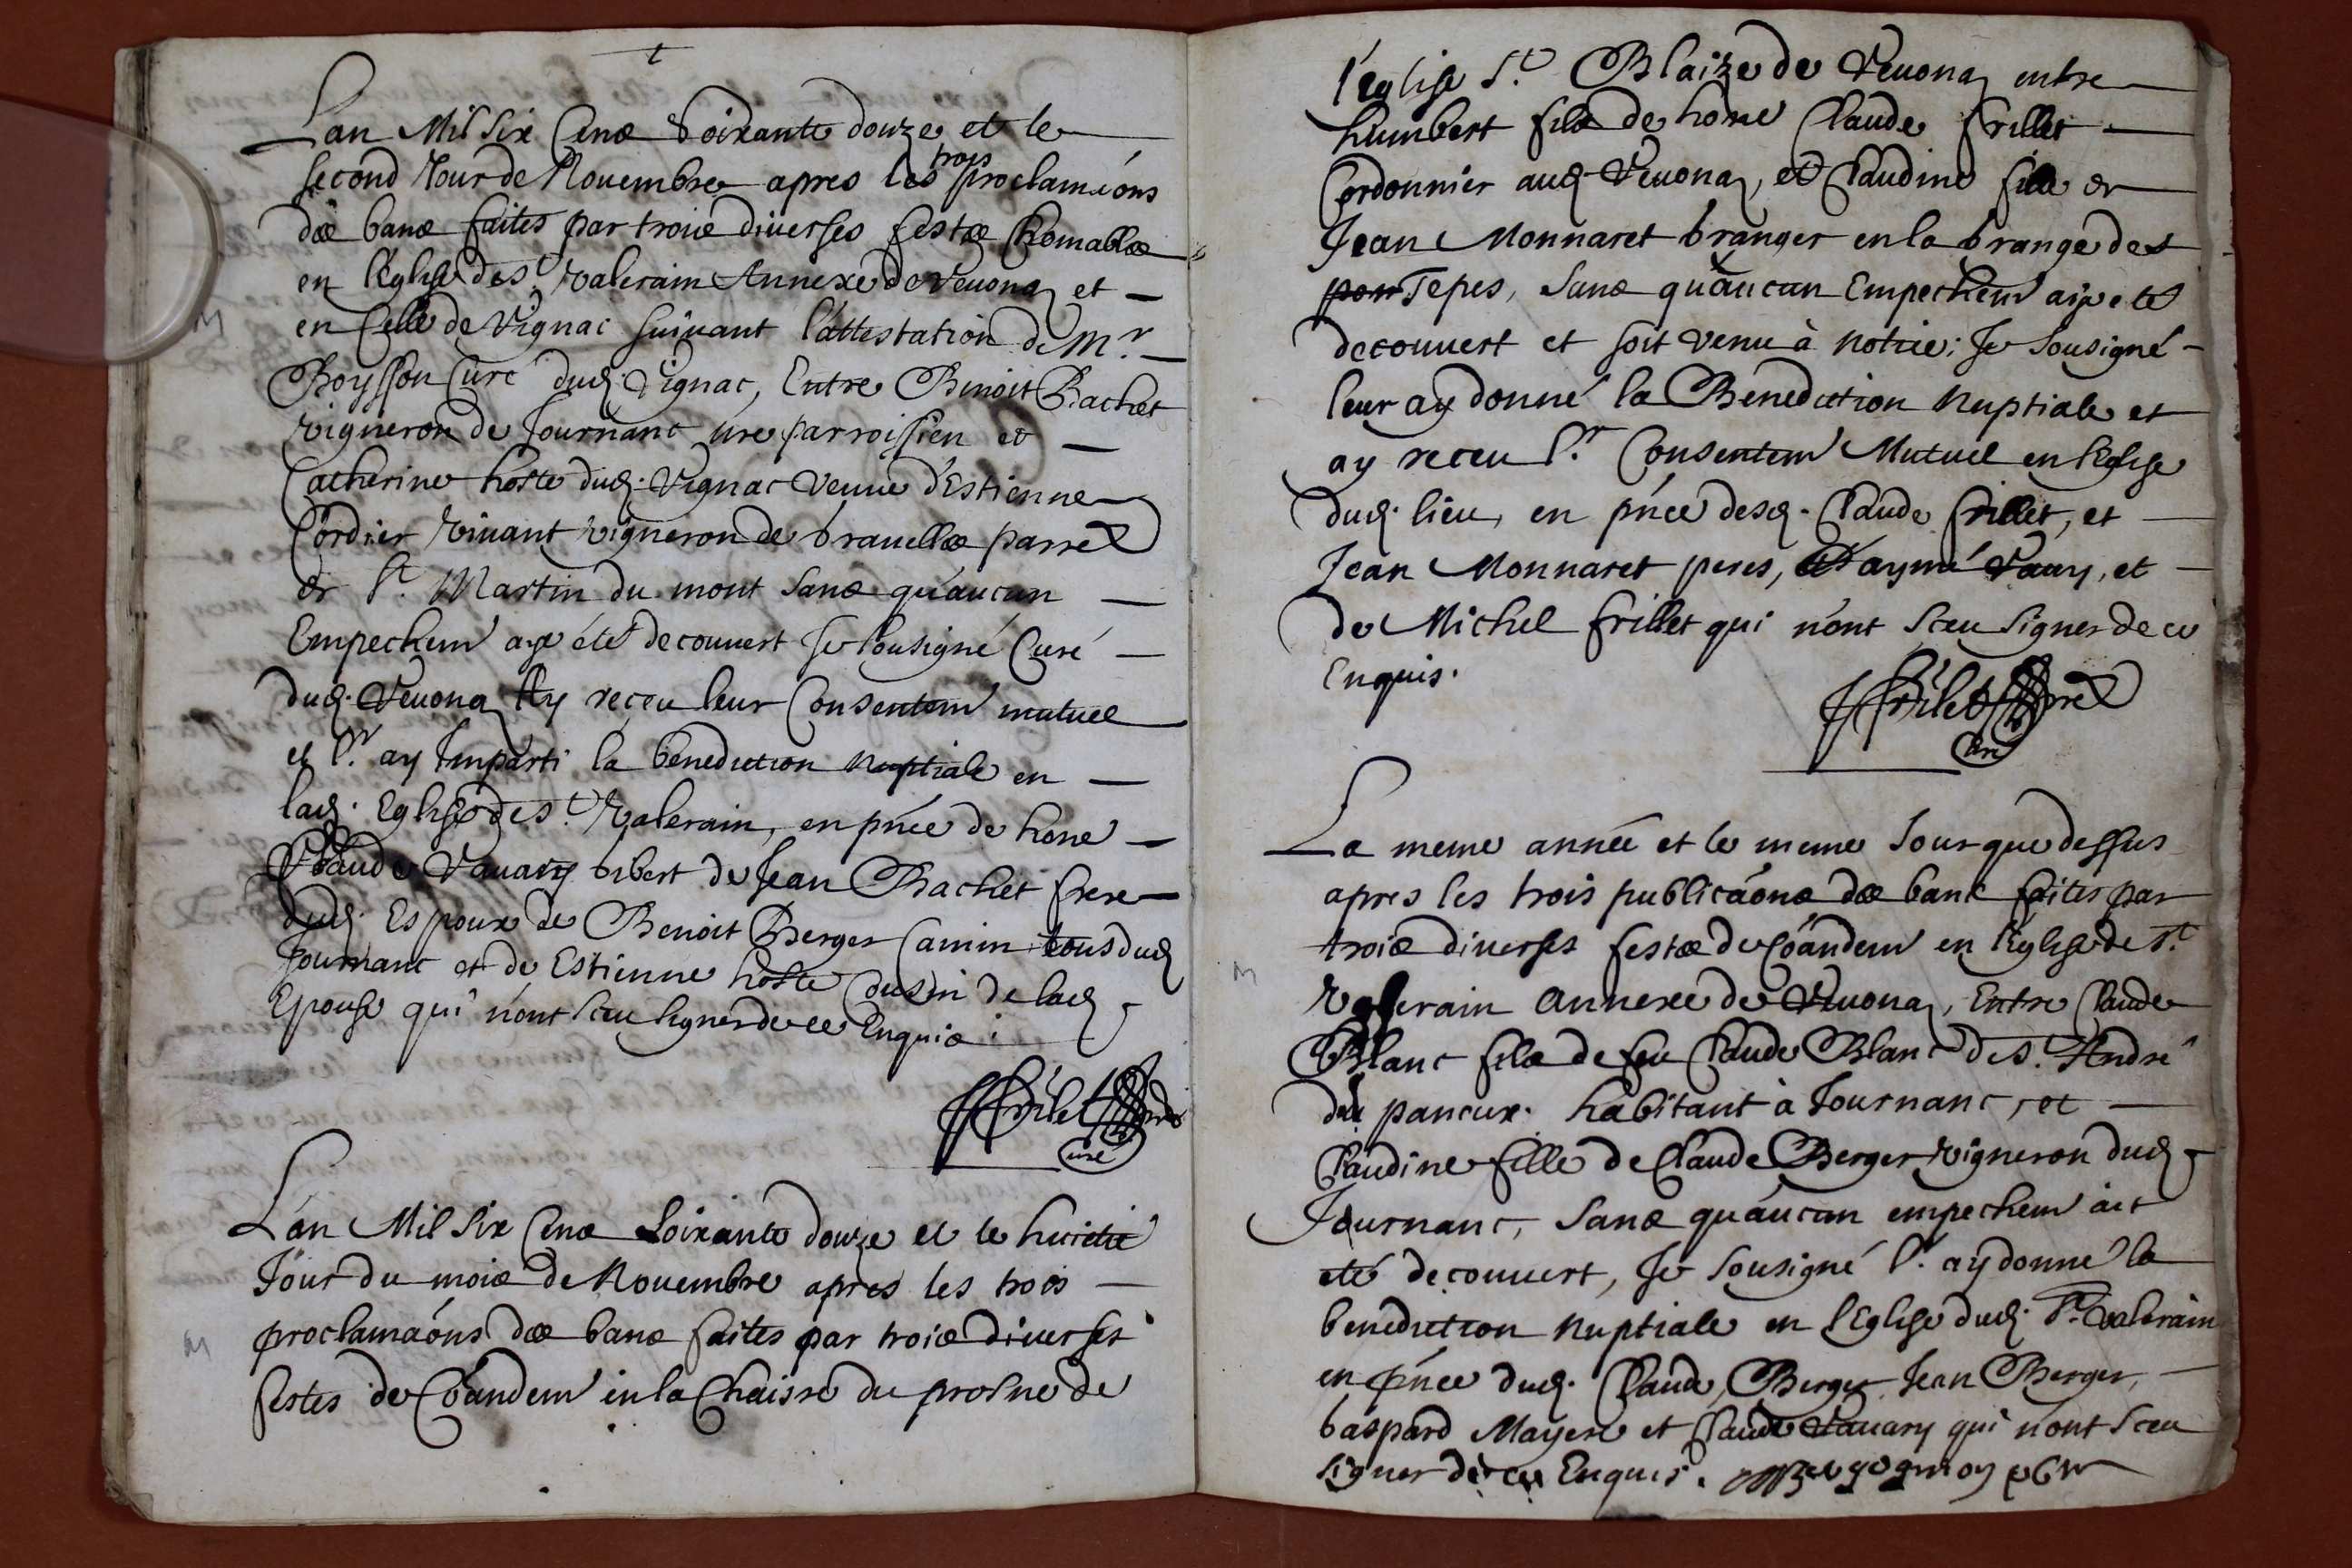 L'an Mil Six Cens Soixante douze et le
second Jour de Nouembre apres les trois proclamaōns
des bans faites par trois diuerses festes Chomables
en l'Eglise de St. Valerain Annexe de Veuona et
en Celle de Vignac suiuant l'attestation de Mr.
Boysson Curé dud. Vignac, Entre Benoit Bachet
vigneron de Journanc nre parroissien et
Catherine hoste dud. Vignac veuue d'Estienne
Cordier viuant vigneron de brauelles parre
de St. Martin du mont sans qu'aucun
Empechem aye été decouuert Je Sousigné Curé
dud. Veuona Ay receu leur Consentem mutuel
et lr. ay Imparti la benediction nuptiale en
lad. Eglise de St. Valerain, en pñce de hone
Claude Vauary bibert de Jean Bachet frere
dud. Espoux de Benoit Berger Camin tous dud
Journanc et de Estienne hoste Cousin de lad.
Epouse qui n'ont sceu signer de ce Enquis.
Frilet
curé
L'an Mil Six Cens Soixante douze et le huictie
Jour du mois de Nouembre apres les trois
proclamaóns des bans faites par trois diuerses
festes de Cõandem en la Chaisre du prosne de
l'eglise St. Blaize de Veuona entre
humbert fils de hone Claude frillet
Cordonnier aud. Veuona, et Claudine fille de
Jean Monnaret branger en la brange des
Tepes, Sans qu'aucun Empechem aye eté
decouuert et soit venu à notice: Je Sousigné
leur ay donné la Benediction Nuptiale et
ay receu lr. Consentem Mutuel en l'Eglise
dud. lieu, en pñce desd. Claude frillet, et
Jean Monnaret peres, d'aymé Vauy, et
de Michel frillet qui n'ont sceu signer de ce
Enquis.
Frilet
Curé
La meme année et le meme Jour que dessus
apres les trois publicaóns des bans faites par
trois diuerses festes de Cõandem en l'Eglise de St.
Valerain annexe de Veuona, Entre Claude
Blanc fils de feu Claude Blanc de St. André
du panoux habitant à Journanc, et
Claudine fille de Claude Berger vigneron dud.
Journanc, Sans qu'aucun empechem ait
eté decouuert, Je Sousigné lr. ay donné la
benediction nuptiale en l'Eglise dud. St. Valerain
en pñce dud. Claude Berger Jean Berger,
baspard Mayere et Claude Vauary qui n'ont sceu
signer de ce Enquis.